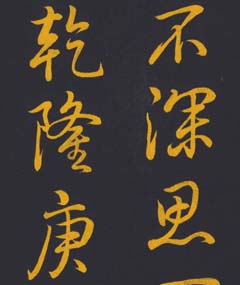 不深思
乾隆庚